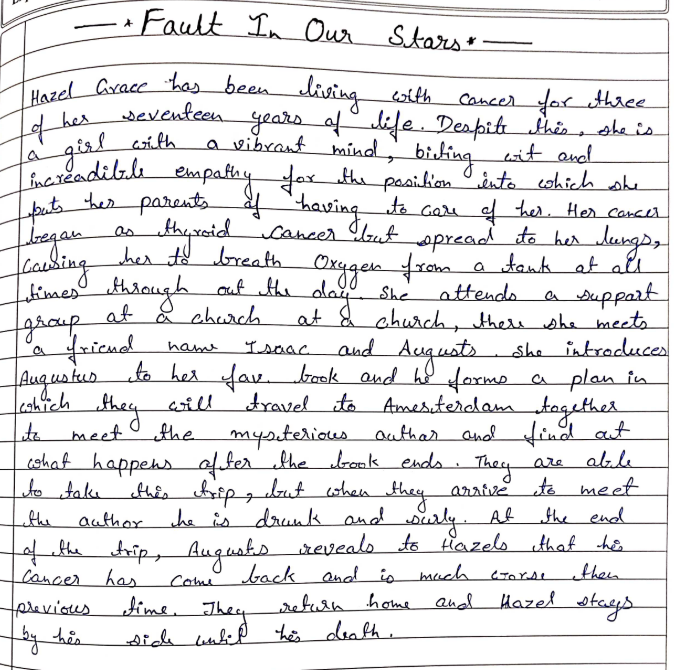 —* Fault In Our Stars *—
Hazel Grace has been living with cancer for three
of her seventeen years of life. Despite this, she is
a girl with a vibrant mind, biting wit and
increadible empathy for the position into which she
puts her parents of having to care of her. Her cancer
began as thyroid cancer but spread to her lungs,
causing her to breath Oxygen from a tank at all
times through out the day. She attends a support
group at a church at a church, there she meets
a friend name Isaac and Augusts. She introduces
Augustus to her fav. book and he forms a plan in
which they will travel to Amersterdam together
to meet the mysterious author and find out
what happens after the book ends. They are able
to take this trip, but when they arrive to meet
the author he is drunk and surly. At the end
of the trip, Augusts reveals to Hazels that his
cancer has come back and is much worse then
previous time. They return home and Hazel stays
by his side until his death.